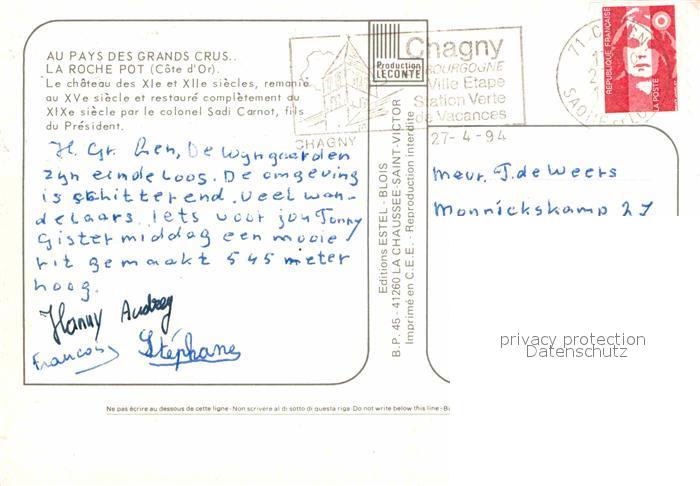 AU PAYS DES GRANDS CRUS..
LA ROCHE POT (Côte d'Or).
Le château des XIe et XIIe siècles, remanié
au XVe siècle et restauré complètement au
XIXe siècle par le colonel Sadi Carnot, fils
du Président.
H. Gr. Lien, De Wyngaarden
zyn eindeloos. De omgeving
is schitterend. Veel wan-
delaars. Iets voor jou Tonny
Gistermiddag een mooie
rit gemaakt 545 meter
hoog.
Hanny Audrey
Francois Stéphane
Production
LECONTE
CHAGNY
Chagny
BOURGOGNE
Ville Etape
Station Verte
de Vacances
71-C
SAONE ET LO
REPUBLIQUE FRANÇAISE
LA POSTE
27-4-94
Editions ESTEL - BLOIS
B.P. 45 - 41260 LA CHAUSSEE-SAINT-VICTOR
Imprimé en C.E.E. - Reproduction interdite
Mevr. T. de Weers
Monnickskamp 27
privacy protection
Datenschutz
Ne pas écrire au dessous de cette ligne - Non scrivere al di sotto di questa riga - Do not write below this line - Bi